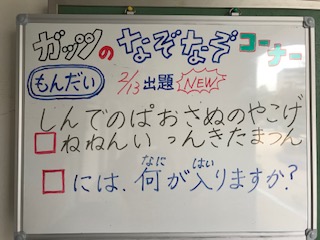 ガッツのなぞなぞコーナー
もんだい 2/13出題 NEW
しんでのぱおさぬのやこげ
□ねねんいっんきたまつん
□には、何が入りますか?
なに はい